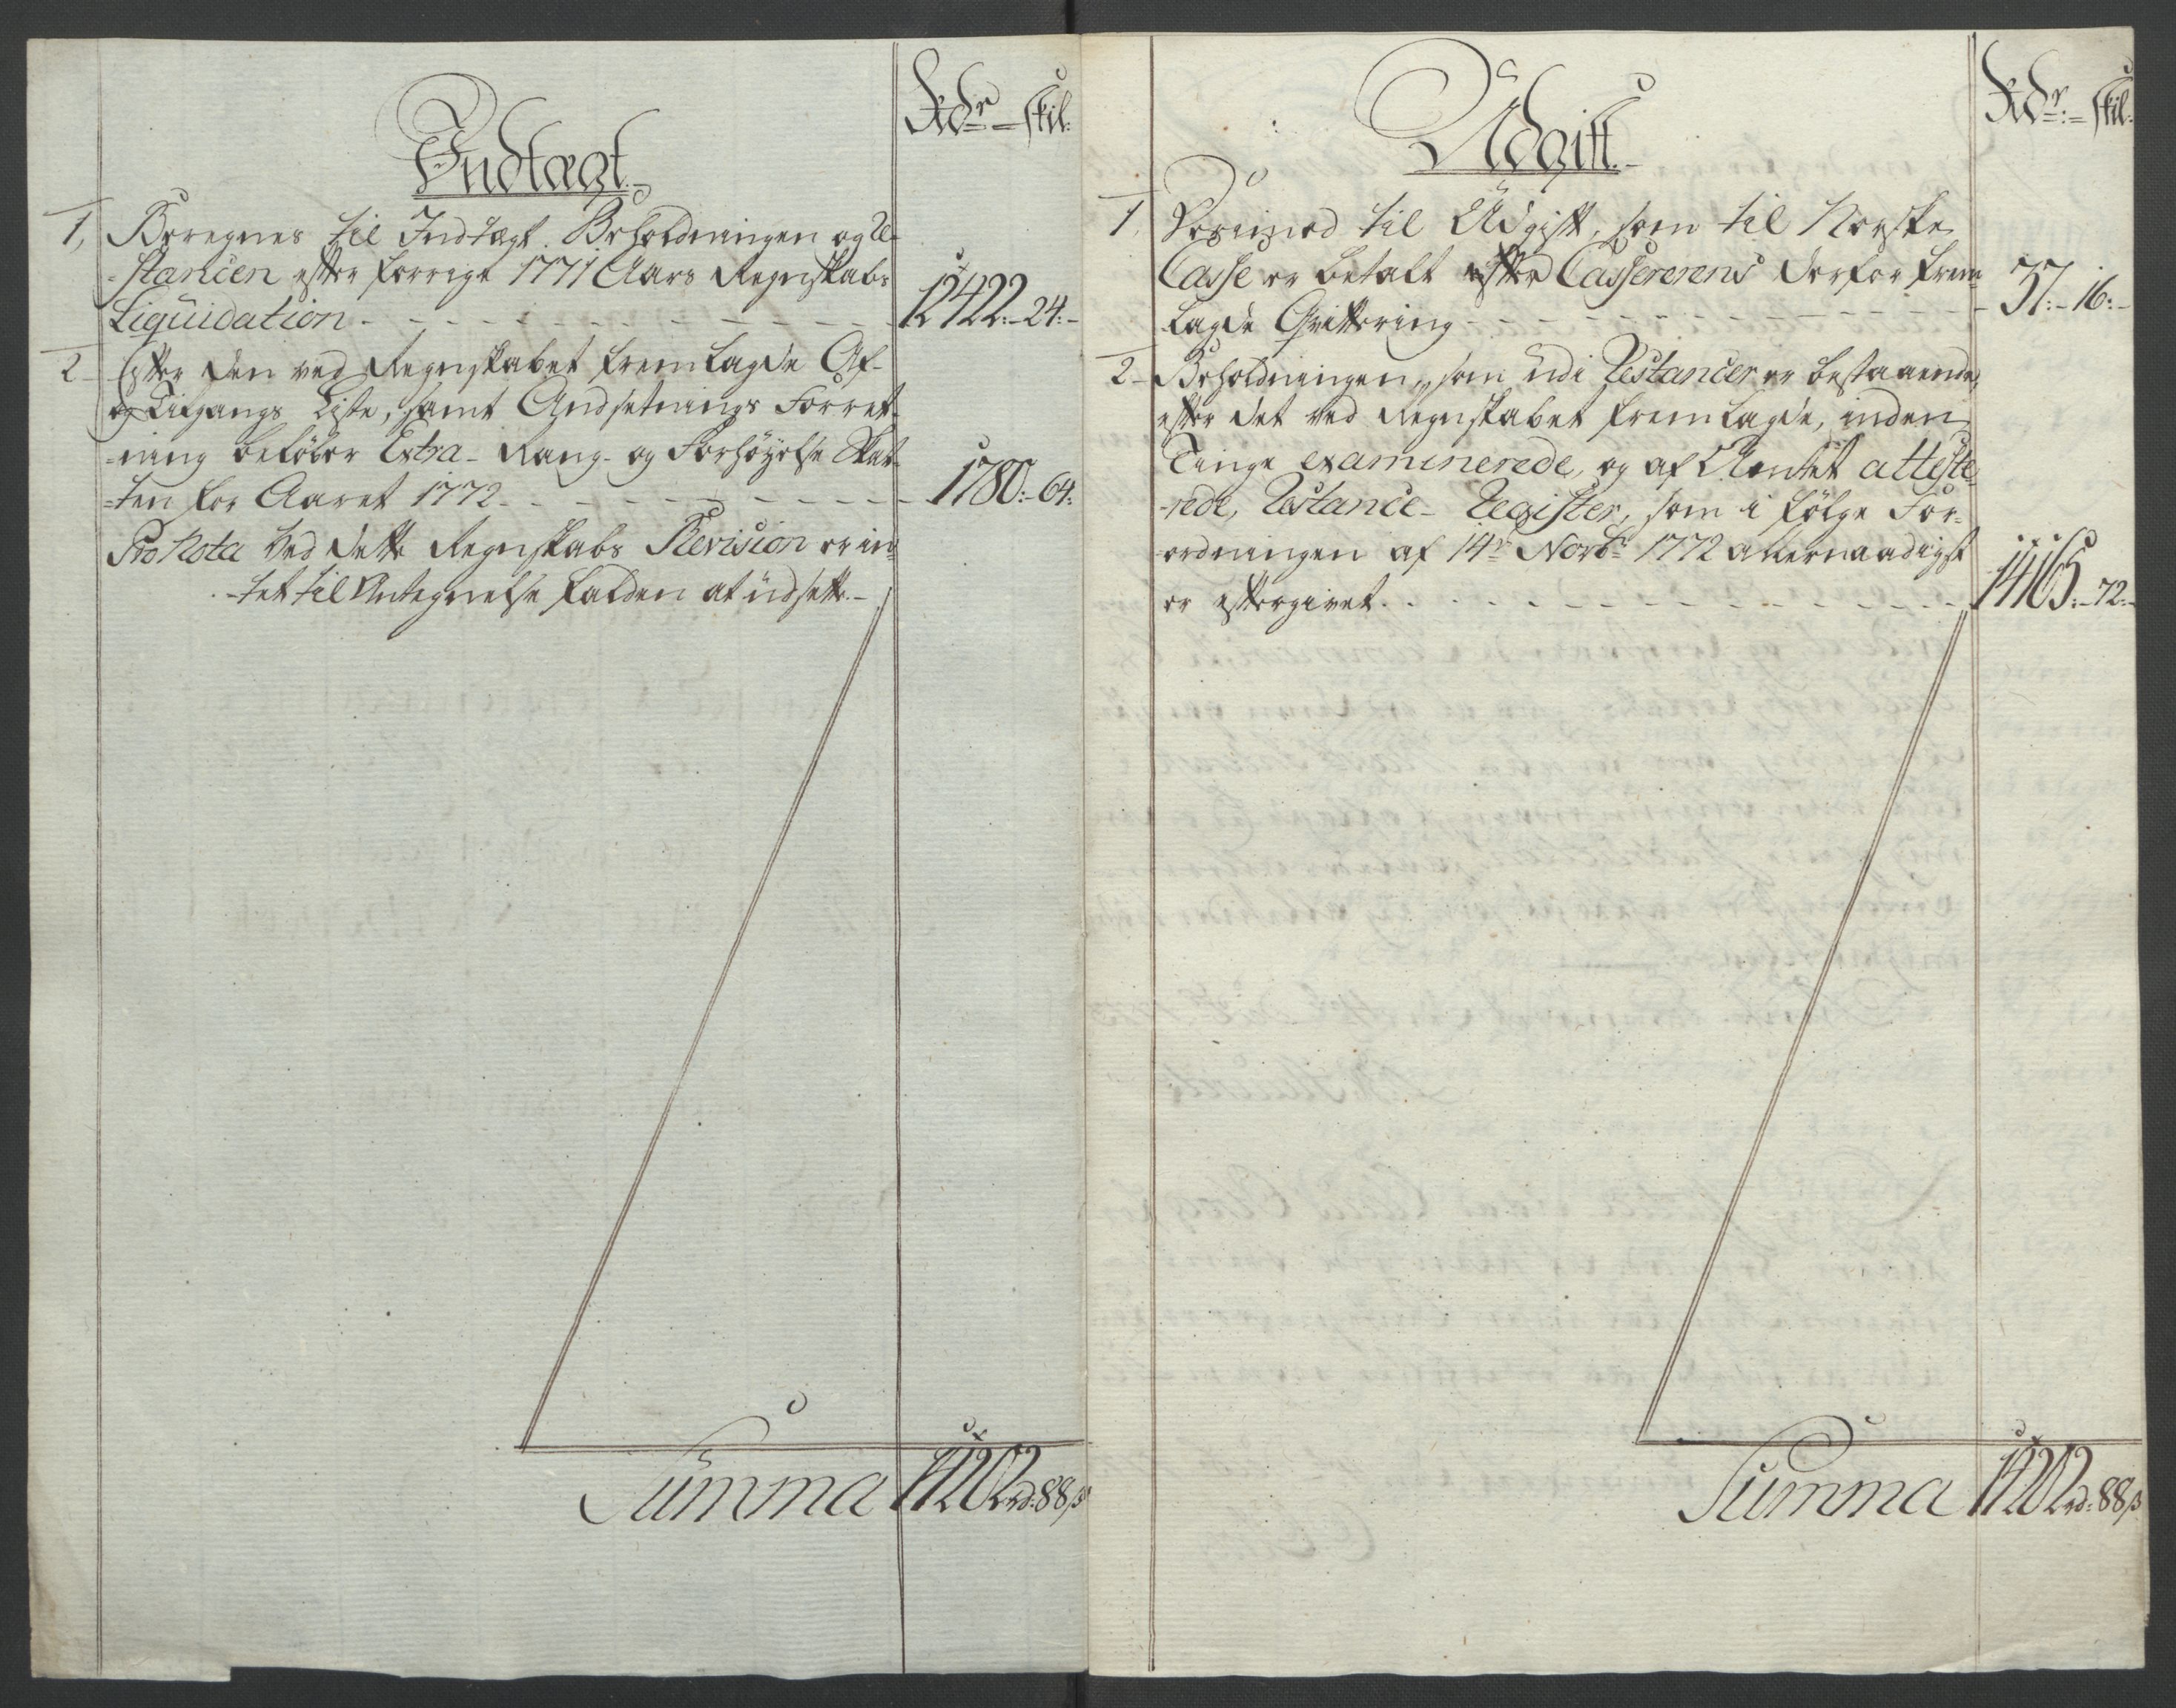 Rdr - skil:
Indtægt.
1, Beregnes til Indtægt. Beholdningen og Re-
=stancen efter forrige 1771 Aars Regnskabs
Liqvidation - - - 12422:-24:-
2 Efter den ved Regnskabet fremlagde Af-
og Tilgangs Liste, samt Andsetnings Forret-
=ning beløber Extra- Rang- og Forhøyelse Skat-
=ten for Aaret 1772 - - - 1780:-64:
Pro Nota Ved dette Regnskabs Revision er in-
-tet til Antegnelse falden at udsette.-
Summa 14202rd:88s
Rdr:- skil:
Udgift.-
1, Derimod til Udgift, som til Norske
Casse er betalt efter Casererens derfor frem-
lagde Qvittering - - - 37:-16:-
2- Beholdningen, som udi Restancer er bestaaende,
efter det ved Regnskabet fremlagde, inden
Tinge examinerede, og af Amtet atteste-
-rede, Restance- Register, som i følge For-
-ordningen af 14de Novbr 1772 allernaadigst
er eftergivet. - - - 14165:-72:-
Summa 14202rd:88s